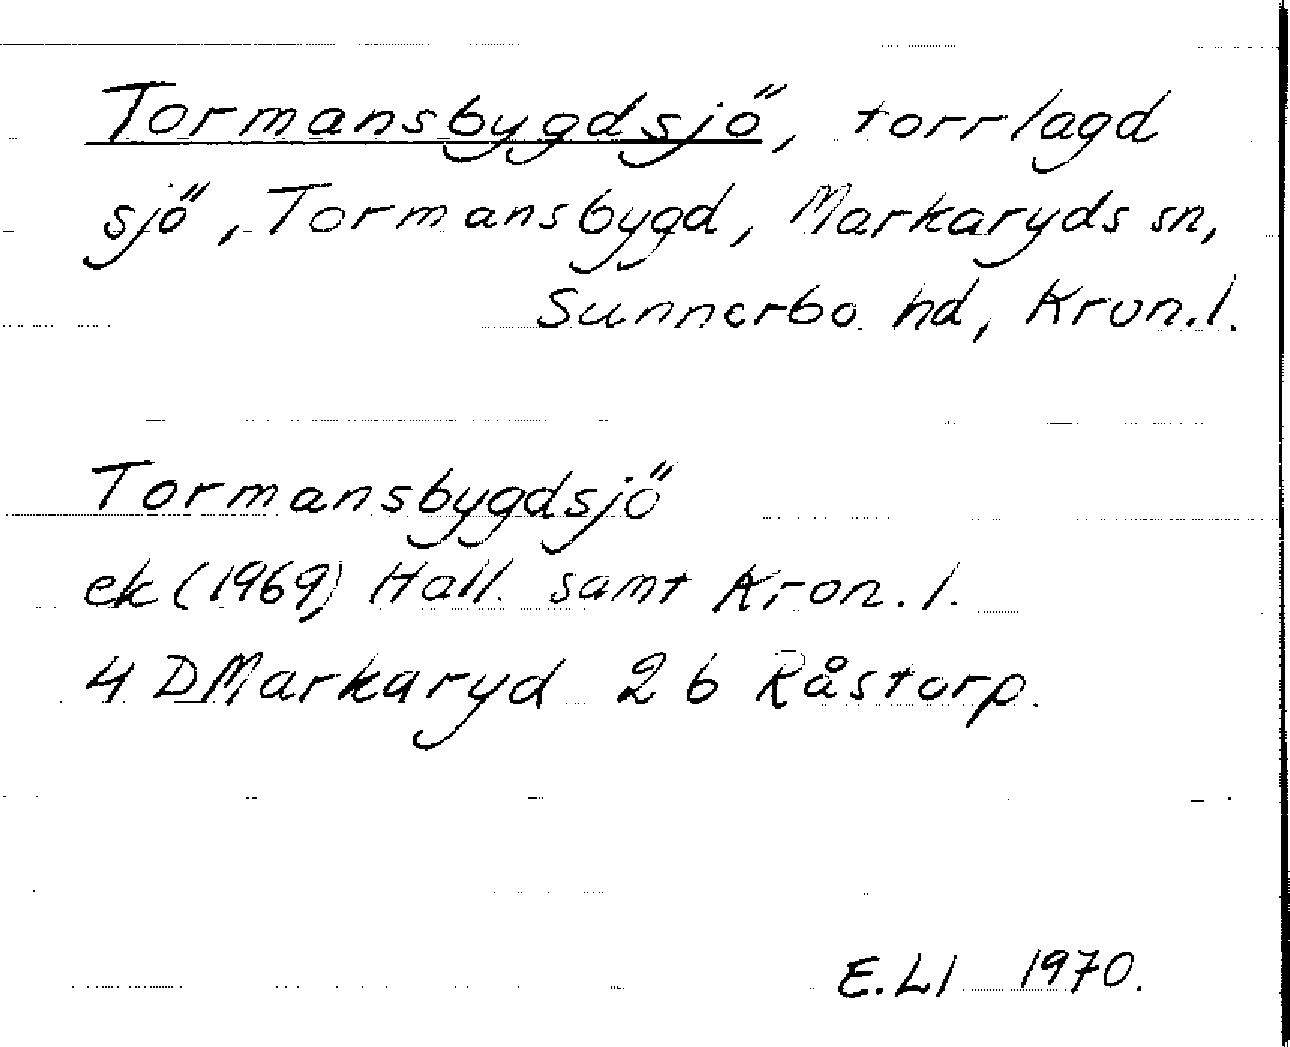 Tormansbygdsjö, torrlagd
sjö, Tormansbygd, Markaryds sn,
Sunnerbo hd, Kron.l.
Tormansbygdsjö
ek (1969) Hall. samt Kron.l.
4 D Markaryd 2 b Råstorp.
E.Ll 1970.